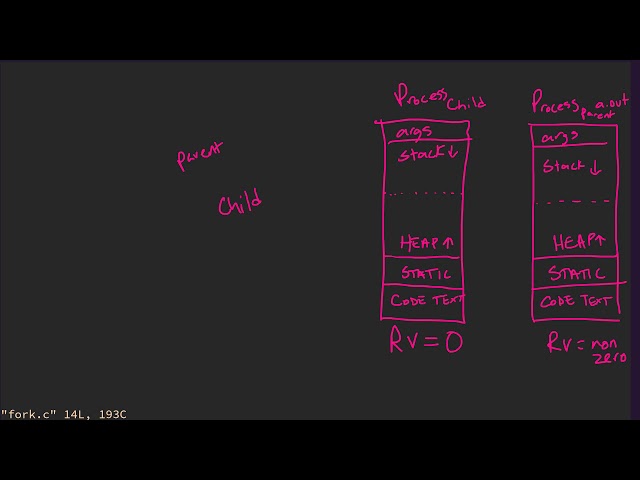 parent
Child
Process Child
args
Stack ↓
HEAP ↑
STATIC
CODE TEXT
RV = 0
Process a.out
parent
args
Stack ↓
HEAP ↑
STATIC
CODE TEXT
RV = non
zero
"fork.c" 14L, 193C